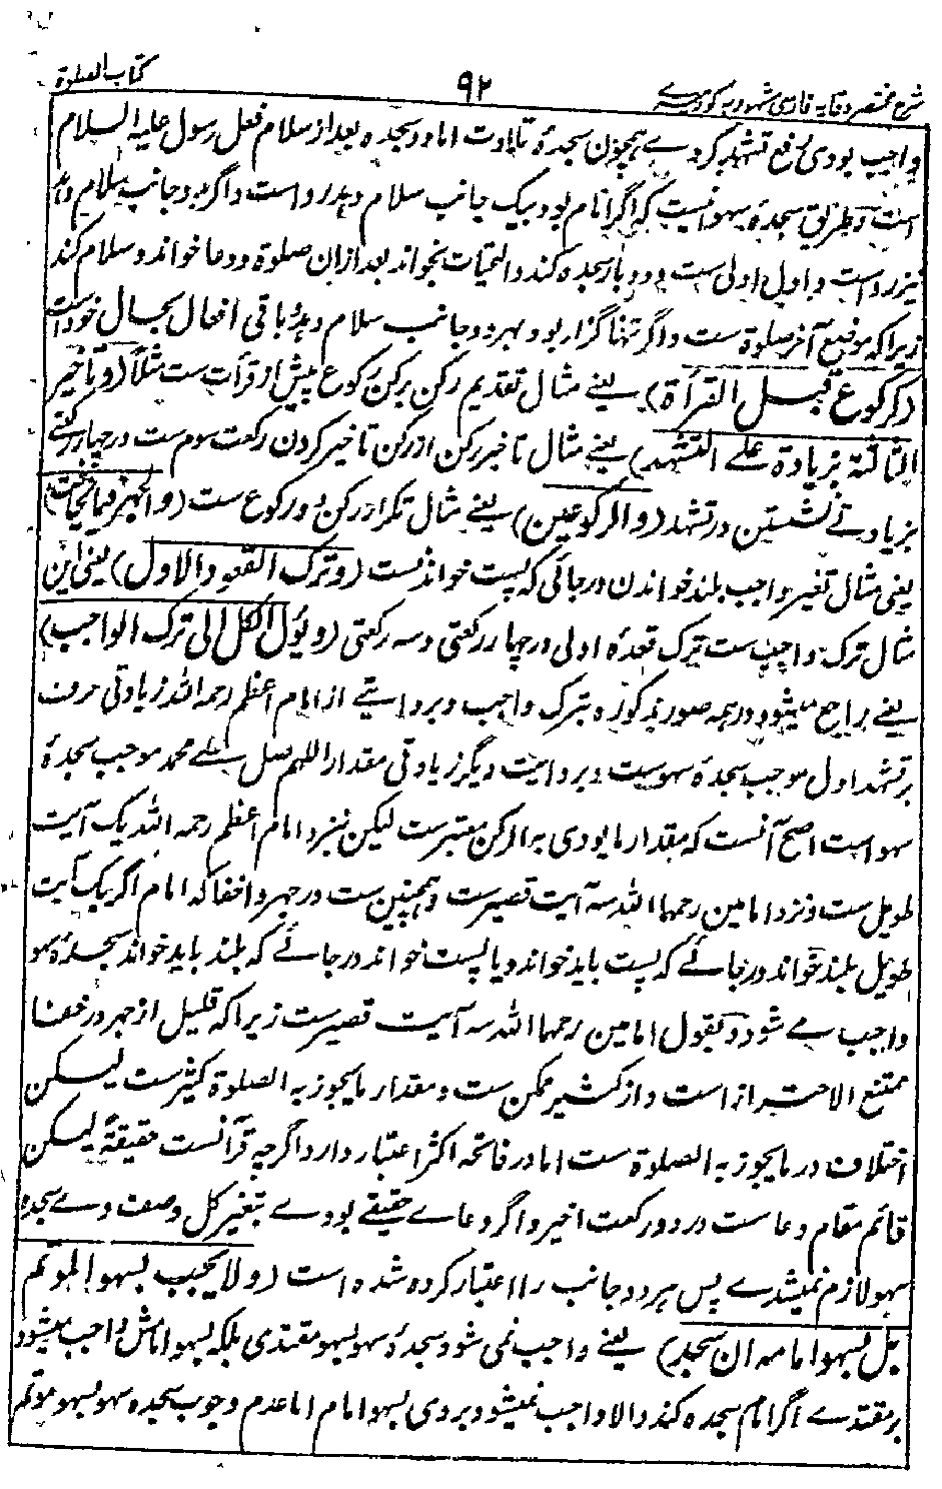 شرح مختصر وقایه فارسی مشهور به کور میرے
۹۲
کتاب الصلوة
واجب بودی رفع تشهد کردے ہمچون سجدۂ تلاوت اما دو سجدہ بعد از سلام فعل رسول علیہ السلام
است و طریق سجدۂ سهو آنست کہ اگر امام بود بیک جانب سلام دہد رواست و اگر بدو جانب سلام داد
نیز رواست و اول اولی ست و دو بار سجدہ کند و التحیات بخواند بعد ازان صلوة و دعا خواند و سلام کند
زیرا کہ موضع آخر صلوة ست و اگر تنها گزار بود بهر دو جانب سلام دہد و باقی افعال بحال خود است
(کرکوع قبل القرأة) یعنے مثال تقدیم رکن برکن رکوع پیش از قرأت ست مثلاً (و تاخیر
الثالثة بزیادة علے التشهد) یعنے مثال تاخیر رکن از رکن تاخیر کردن رکعت سوم ست در چهار رکعتے
بزیادتے نشستن در تشهد (والرکوعین) یعنے مثال تکرار رکن دو رکوع ست (والجهر فیما یخافت)
یعنی مثال تغیر واجب بلند خواندن در جائی کہ پست خواندنست (و ترک القعود الاول) یعنی این
مثال ترک واجب ست ترک قعدۂ اولی در چهار رکعتی و سہ رکعتی (و یؤل الکل الی ترک الواجب)
یعنے راجع میشود در ہمہ صور مذکورہ بترک واجب و بروایتے از امام اعظم رحمہ اللہ زیادتی حرف
بر تشهد اول موجب سجدۂ سهوست و بروایت دیگر زیادتی مقدار اللهم صل علے محمد موجب سجدۂ
سهو است اصح آنست کہ مقدار ما یودی بہ الرکن معتبرست لیکن نزد امام اعظم رحمہ اللہ یک آیت
طویل ست و نزد امامین رحمهما اللہ سہ آیت قصیرست و ہمچنین ست در جهر و اخفا کہ امام اگر یک آیت
طویل بلند خواند در جائے کہ پست باید خواند و یا پست خواند در جائے کہ بلند باید خواند سجدۂ سهو
واجب مے شود و بقول امامین رحمهما اللہ سہ آیت قصیرست زیرا کہ قلیل از جهر در خفا
ممتنع الاحتراز است و از کثیر ممکن ست و مقدار ما یجوز بہ الصلوة کثیرست لیکن
اختلاف در ما یجوز بہ الصلوة ست اما در فاتحہ اکثر اعتبار دارد اگرچہ قرآنست حقیقةً لیکن
قائم مقام دعا ست در دو رکعت اخیر و اگر دعاے حقیقے بودے بتغیر کل وصف وے سجدہ
سهو لازم نمیشدے پس ہر دو جانب را اعتبار کردہ شدہ است (ولا یجب بسهو المؤتم
بل بسهو امامہ ان سجد) یعنے واجب نمی شود سجدۂ سهو بسهو مقتدی بلکہ بسهو امامش واجب میشود
بر مقتدے اگر امام سجدہ کند و الا واجب نمیشود بر وی بسهو امام اما عدم وجوب سجدہ سهو بسهو مؤتم